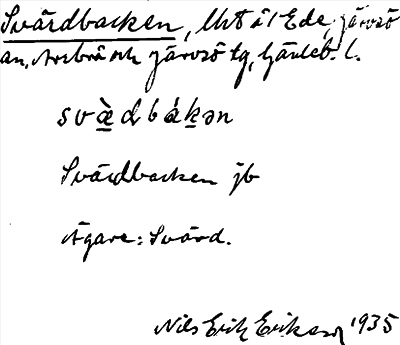 Svärdbacken, lht å 1 Ede, Järvsö
sn, Arbrå och Järvsö tg, Gävleb. l.
svæ̀dbákən
Svärdbacken jb
Ägare: Svärd.
Nils Erik Eriksson 1935